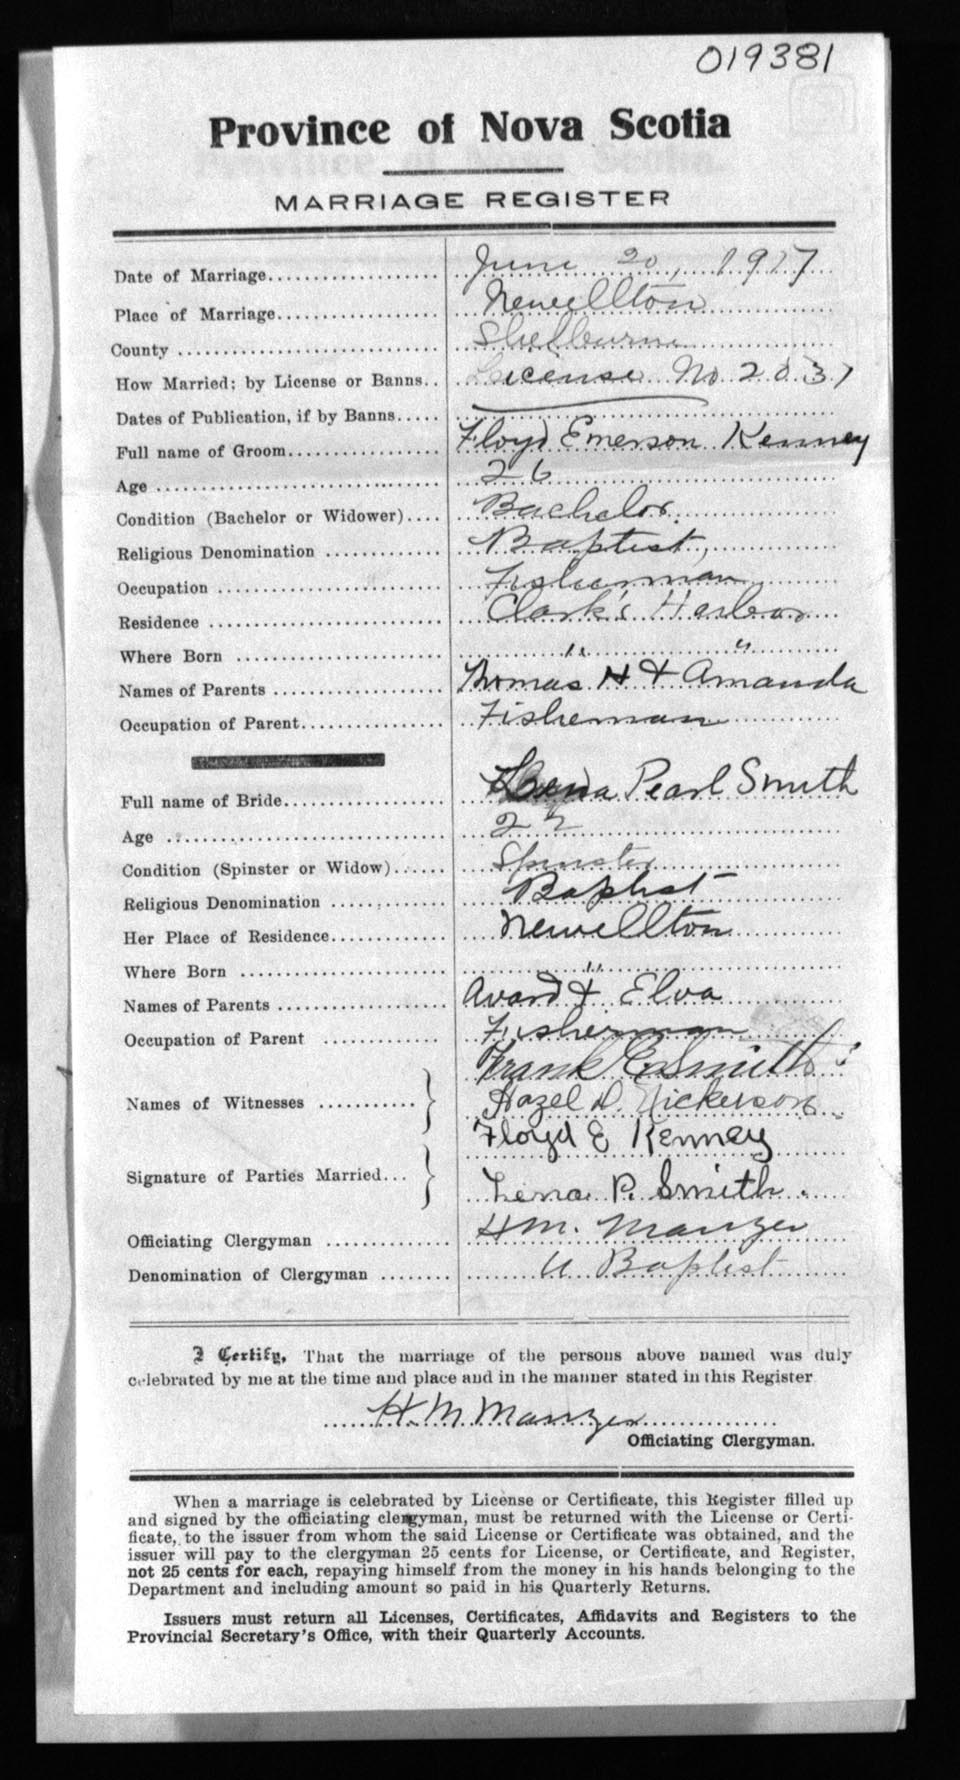 019381
Province of Nova Scotia
MARRIAGE REGISTER
Date of Marriage.................. June 20, 1917
Place of Marriage................. Newellton
County ........................... Shelburne
How Married; by License or Banns.. License No 2037
Dates of Publication, if by Banns..... ———
Full name of Groom................ Floyd Emerson Kenney
Age .............................. 26
Condition (Bachelor or Widower).... Bachelor.
Religious Denomination ............ Baptist,
Occupation ....................... Fisherman
Residence ........................ Clark's Harbor
Where Born ....................... " "
Names of Parents ................. Thomas H & Amanda
Occupation of Parent.............. Fisherman
Full name of Bride................ Lena Pearl Smith
Age .............................. 22
Condition (Spinster or Widow)...... Spinster
Religious Denomination ............ Baptist
Her Place of Residence............ Newellton
Where Born ....................... "
Names of Parents ................. Avard & Elva
Occupation of Parent ............ Fisherman
Frank E Smith
Names of Witnesses ........... } Hazel D. Nickerson
Floyd E Kenney
Signature of Parties Married... }
Lena P. Smith.
Officiating Clergyman ............. H M. Manzer
Denomination of Clergyman ........ U Baptist
I Certify, That the marriage of the persons above named was duly
celebrated by me at the time and place and in the manner stated in this Register
H. M Manzer
Officiating Clergyman.
When a marriage is celebrated by License or Certificate, this Register filled up
and signed by the officiating clergyman, must be returned with the License or Certi-
ficate, to the issuer from whom the said License or Certificate was obtained, and the
issuer will pay to the clergyman 25 cents for License, or Certificate, and Register,
not 25 cents for each, repaying himself from the money in his hands belonging to the
Department and including amount so paid in his Quarterly Returns.
Issuers must return all Licenses, Certificates, Affidavits and Registers to the
Provincial Secretary's Office, with their Quarterly Accounts.